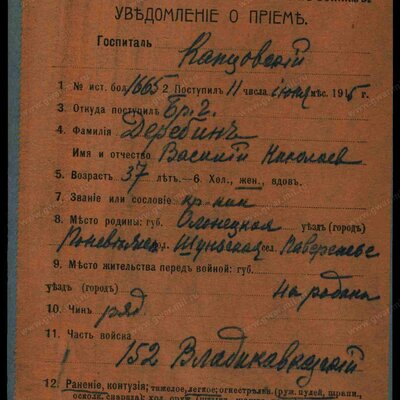 УВѢДОМЛЕНІЕ О ПРІЕМѢ.
Госпиталь Канцовскій
1. № ист. бол. 16652 Поступилъ 11 числа іюля мѣс. 1915 г.
3. Откуда поступилъ Бр. г.
4. Фамилія Деребинъ
Имя и отчество Василій Николаев
5. Возрастъ 37 лѣтъ.—6. Хол., жен., вдов.
7. Званіе или сословіе кр-нин
8. Мѣсто родины: губ. Олонецкая уѣздъ (город)
вол. Шуньгская сел.
9. Мѣсто жительства передъ войной: губ.
уѣздъ (городъ) на родине
10. Чинъ ряд
11. Часть войска
152 Владикавказскій
12. Раненіе, контузія; тяжелое, легкое; огнестрѣльн. (руж. пулей, шрапн.,